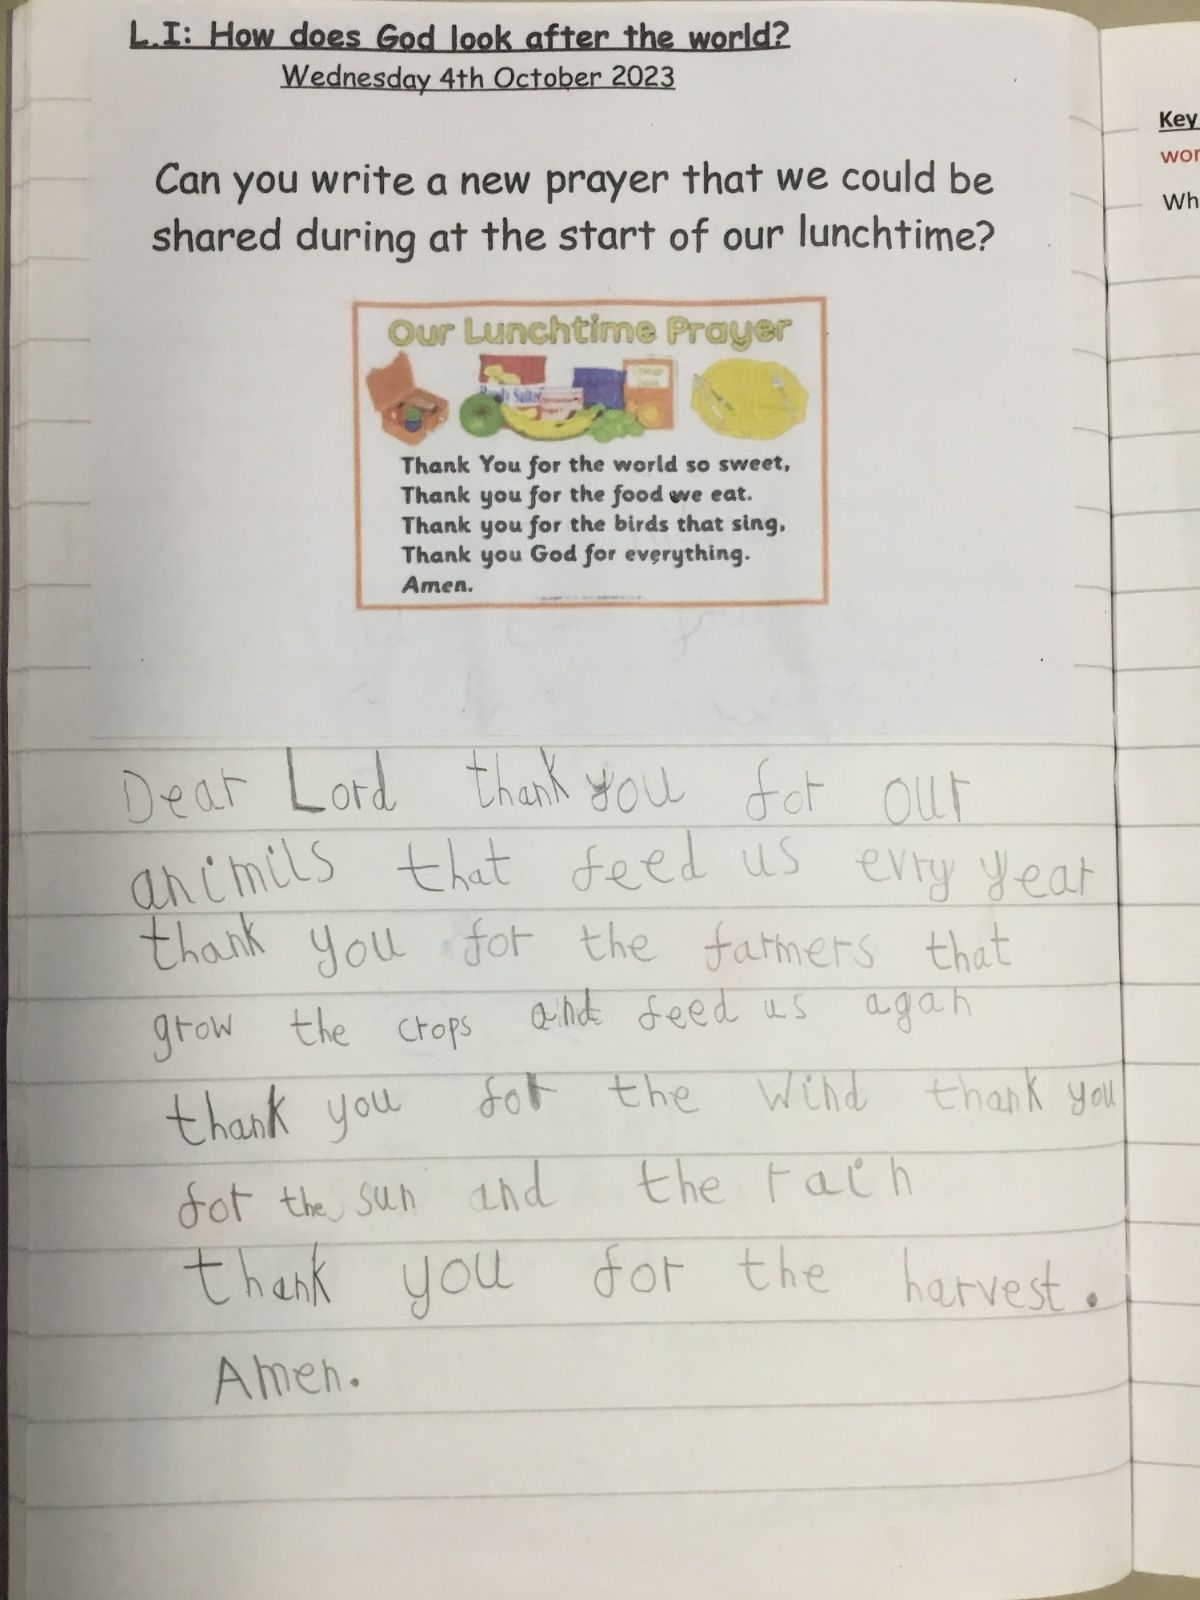 L.I: How does God look after the world?
Wednesday 4th October 2023
Key
wor
Wh
Can you write a new prayer that we could be
shared during at the start of our lunchtime?
Our Lunchtime Prayer
Thank You for the world so sweet,
Thank you for the food we eat.
Thank you for the birds that sing,
Thank you God for everything.
Amen.
Dear Lord thank you for our
animils that feed us evry year
thank you for the farmers that
grow the crops and feed us agan
thank you for the wind thank you
for the sun and the rain
thank you for the harvest.
Amen.